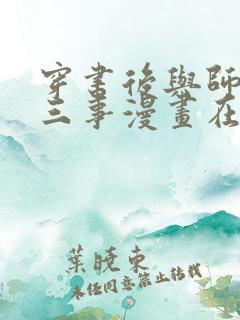 穿書後與師
三事漫畫在
葉曉東
未任同意禁止转载